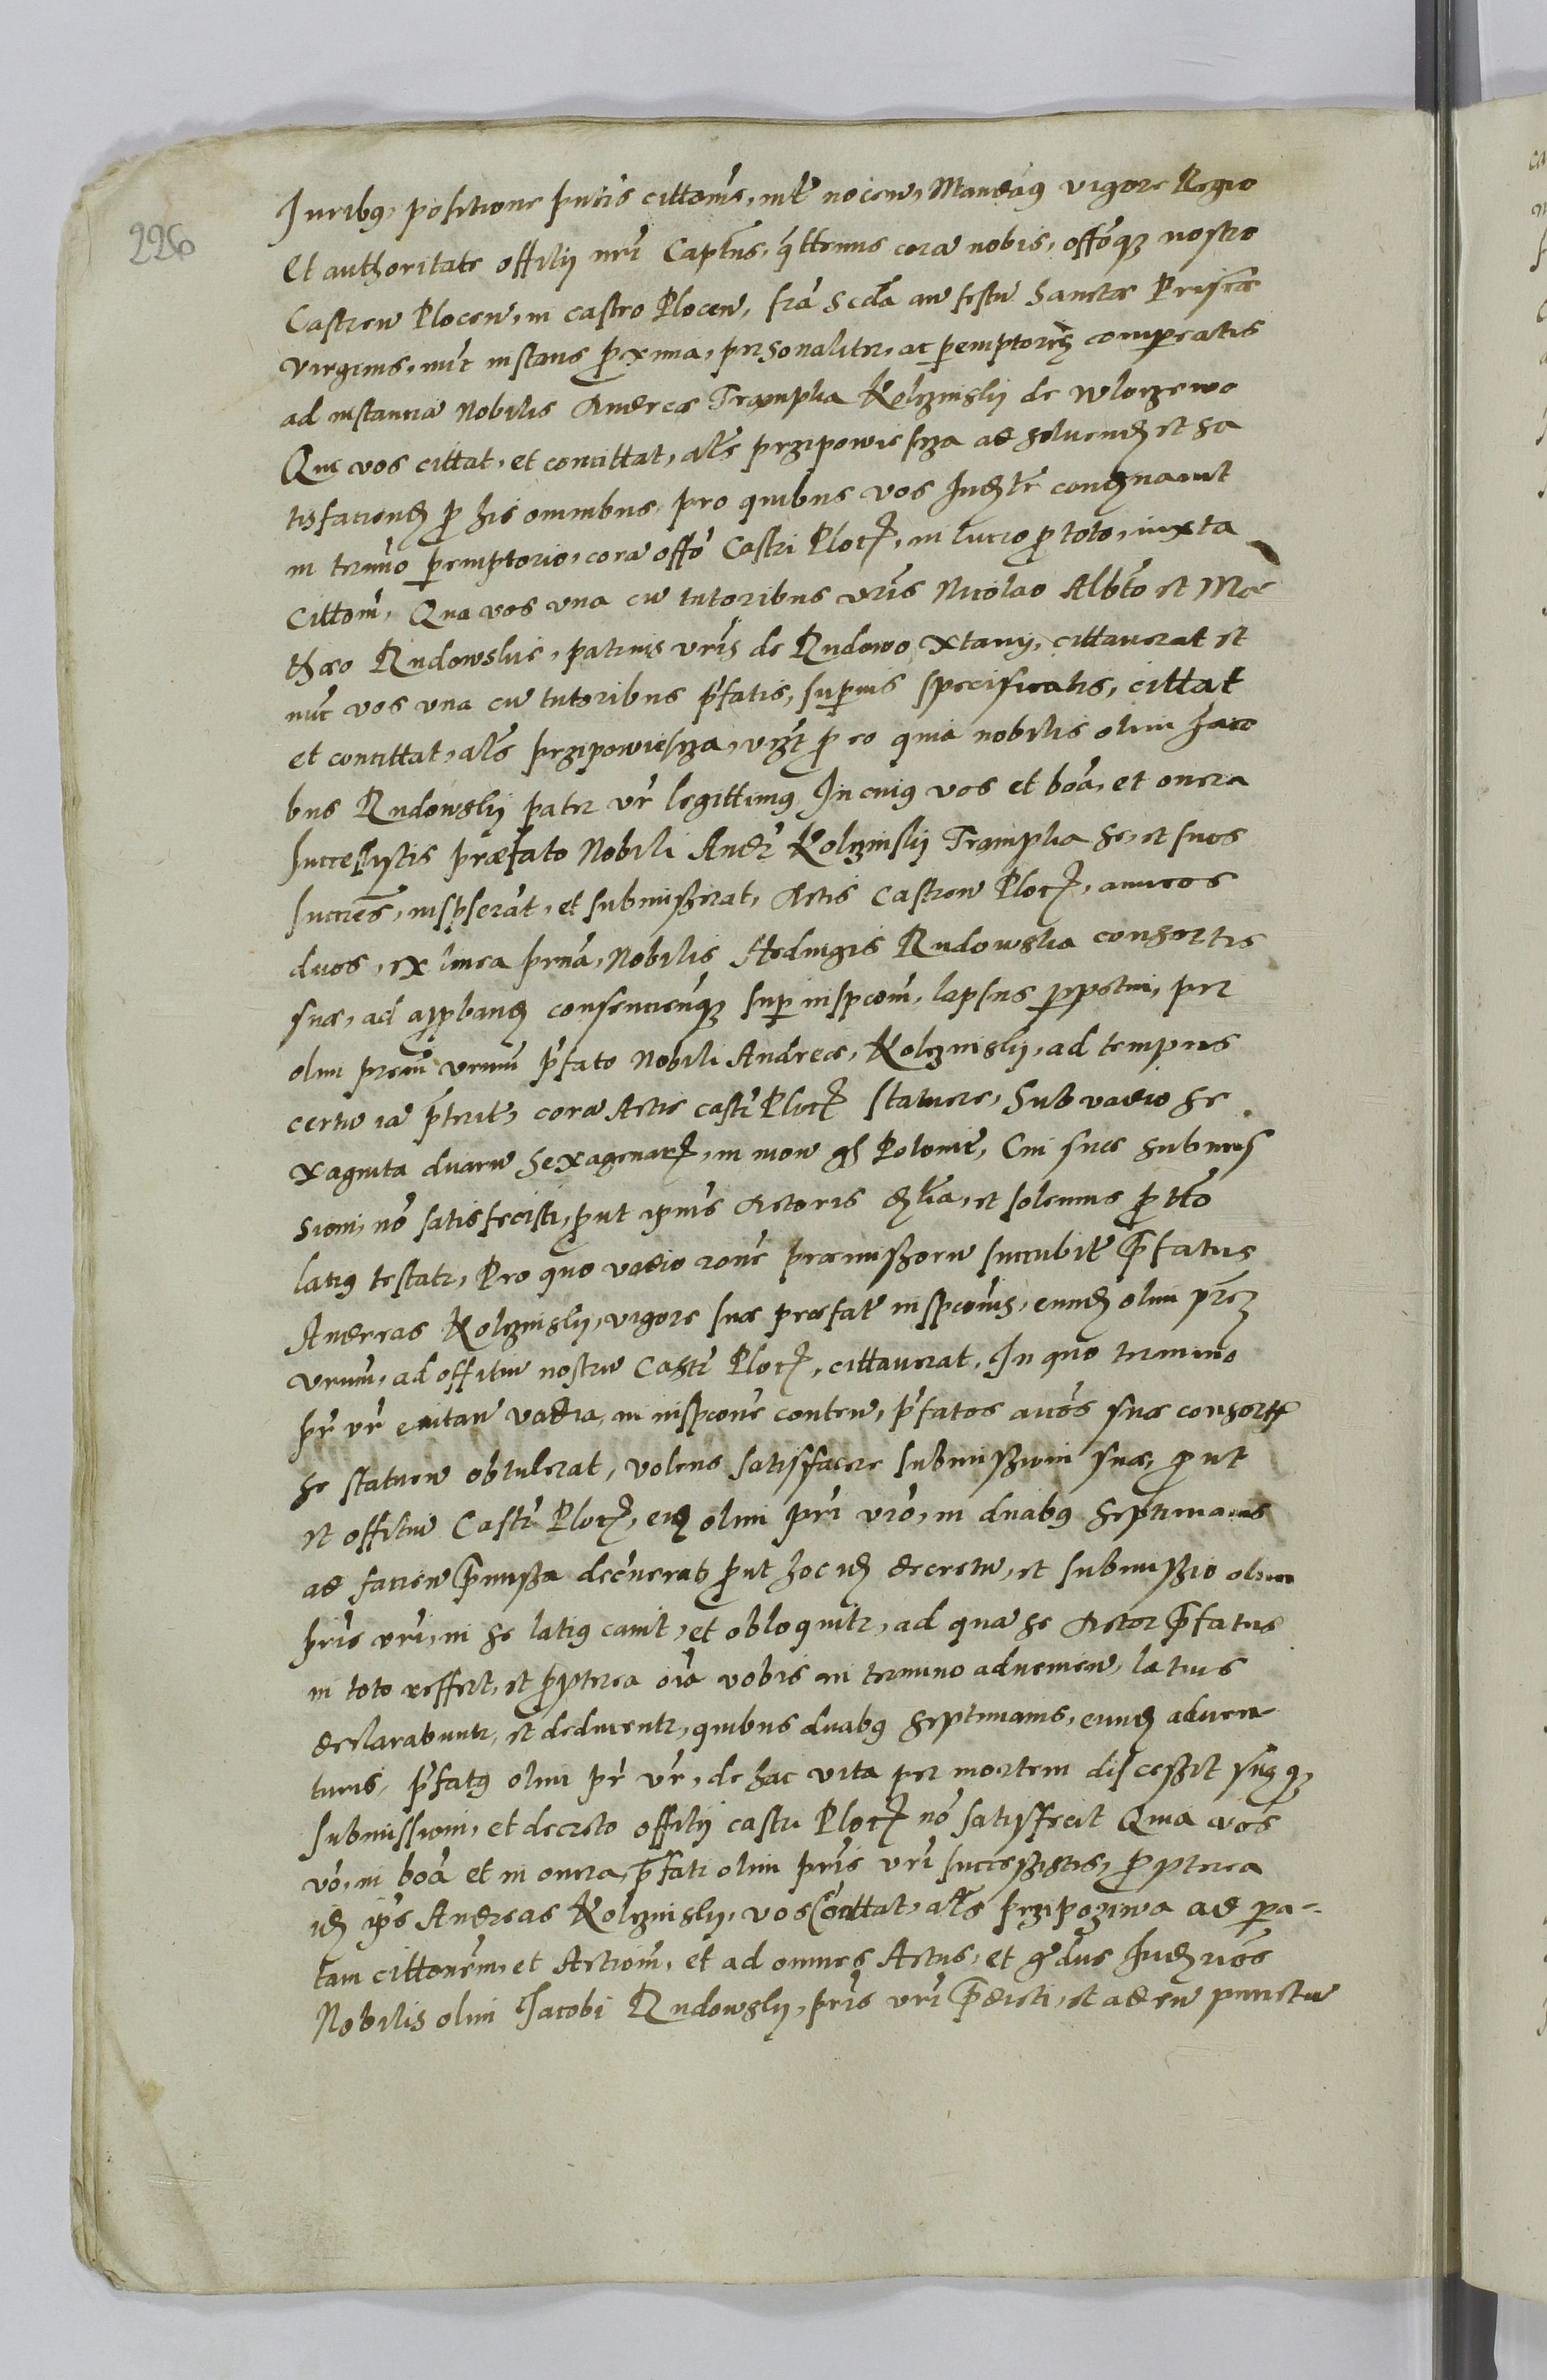 226
Juribus, positione pntis cittonis, mtr nocen, Mandamus vigore Regio
Et authoritate offitij nri Captus, qttenus cora nobis, offoque nostro
Castren Plocen, in castro Plocen, fria Scda an festu Sanctæ Priscæ
virginis, nuc instans proxima, personaliter, ac peremptorie compeatis
ad instantia Nobilis Andreæ Trampka Kolczinskij de Wloczewo
Qui vos cittat, et concittat, als przipowiescza ad solvend et sa
tisfaciend pro his omnibus, pro quibus vos Judlr condmnavit
in termino peremptorio, cora offo Castri Plocen, in lucro pro toto, iuxta
Cittom, Qua vos una cu tutoribus vris Nicolao Albto et Ma
thæo Rudowskie, patruis vris de Rudowo xtany, cittaverat et
nuc vos una cu tutoribus pfatis, superius specificatis, cittat
et concittat, als przipowiescza, vizt pro eo quia nobilis olim Jaco
bus Rudowskij pater vr legittimus, In cuius vos et boa, et onera
successistis præfato Nobili Andr Kolczinskij Trampka se, et suos
succres, inscpserat, et submiszerat, Actis Castren Plocen, amicos
duos, ex linea prna, Nobilis Hedvigis Rudowska consortis
suæ, ad approband consentiendque super inspcom, lapsus perpetui, per
olim prem vrum pfato Nobili Andreæ, Kolczinskij, ad tempus
certu ia preterit, cora Actis castr Plocen statuere, Sub vadio se
xaginta duaru Sexagenar, in mon gs Polonic, Cui suæ submis
sioni, no satisfecisti, prout ipius Actoris qrla, et solennis prtto
latius testatr, Pro quo vadio rone præmiszoru succubit prefatus
Andreas Kolczinskij, vigore suæ præfat inspcionis, eund olim prez
vrum, ad offitiu nostru Castr Plocen, cittaverat, In quo termino
pr vr evitan vadia, in inspcone conten, pfatos amcos suæ consortis
se staturu obtulerat, volens satisfacere submiszioni suæ, prout
et offitiu Castr Plocen, eid olim pri vro, in duabus septimanis
ad facien premissa decreverat, prout hoc id decretu, et submiszio olim
pris vri, in se latius canit, et obloquitr, ad qua se Actor prefatus
in toto reffert, et propterea oia vobis in termino advenien, latius
declarabuntr, et deducentr, quibus duabus septimanis, eund adven
turis, pfatus olim pr vr, de hac vita per mortem discessit suæque
submissioni, et decreto offitij castri Plocen no satisfecit Quia vos
vo, in boa et in onera prefati olim pris vri successistis, propterea
id ips Andreas Kolczinskij, vos concittat, als przipoziwa ad pea-
tam cittonem, et Actiom, et ad omnes Actus, et gradus Judzrios
Nobilis olim Jacobi Rudowskij, pris vri predicti, et ad eu punctu